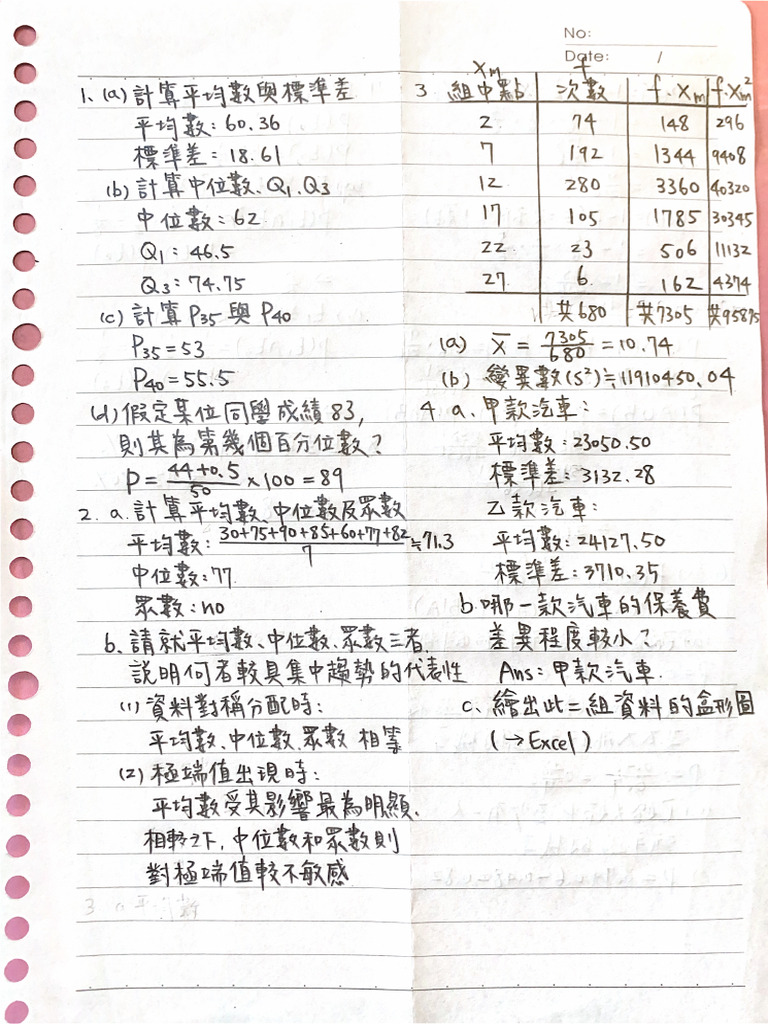 No:
Date: /
1. (a) 計算平均數與標準差
平均數: 60.36
標準差 = 18.61
(b) 計算中位數、Q1、Q3
中位數 = 62
Q1: 46.5
Q3: 74.75
(c) 計算 P35 與 P40
P35 = 53
P40 = 55.5
(d) 假定某位同學成績 83,
則其為第幾個百分位數?
P = (44+0.5)/50 × 100 = 89
2. a. 計算平均數、中位數及眾數
平均數: (30+75+90+85+60+77+82)/7 ≒ 71.3
中位數: 77
眾數: no
b. 請就平均數、中位數、眾數三者,
說明何者較具集中趨勢的代表性
(1) 資料對稱分配時:
平均數、中位數、眾數 相等
(2) 極端值出現時:
平均數受其影響最為明顯.
相較之下, 中位數和眾數則
對極端值較不敏感
3 Xm f
組中點 次數 f·Xm f·Xm²
2 74 148 296
7 192 1344 9408
12 280 3360 40320
17 105 1785 30345
22 23 506 11132
27 6 162 4374
共680 共7305 共95875
(a) X̄ = 7305/680 = 10.74
(b) 變異數(S²) ≒ 11910450.04
4 a. 甲款汽車:
平均數: 23050.50
標準差: 3132.28
乙款汽車:
平均數: 24127.50
標準差: 3710.35
b. 哪一款汽車的保養費
差異程度較小?
Ans: 甲款汽車.
c. 繪出此二組資料的盒形圖
(→Excel)